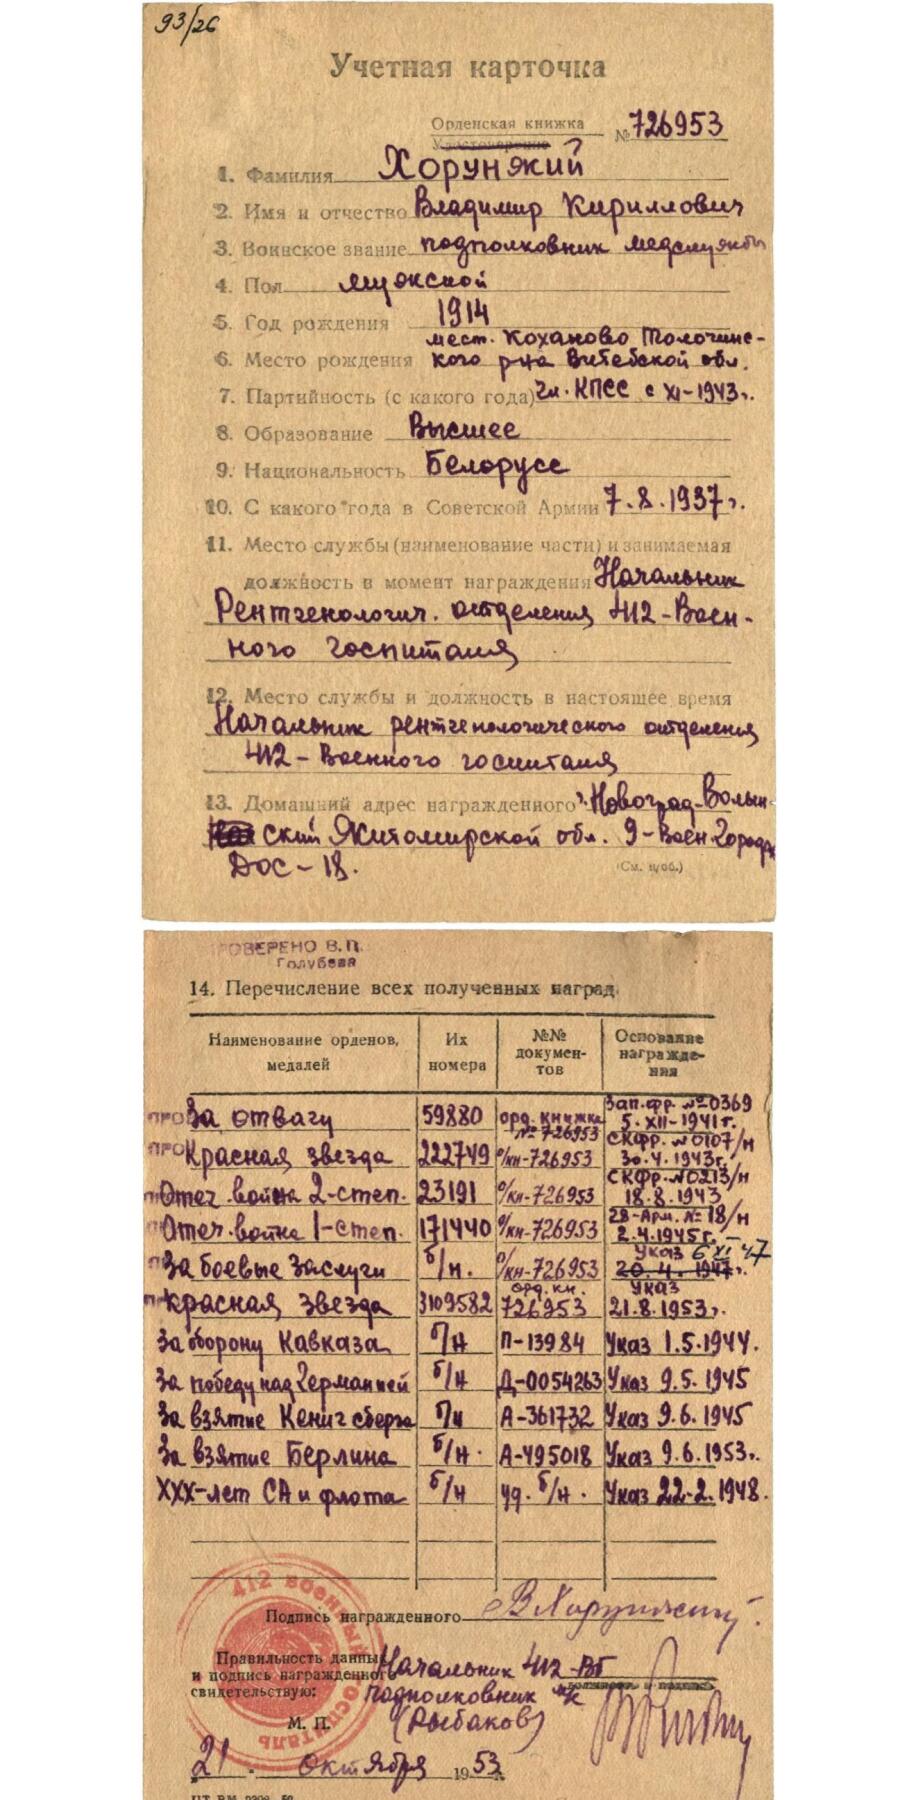 93/26
Учетная карточка
Орденская книжка
Удостоверение
№ 726953
1. Фамилия Хорунжий
2. Имя и отчество Владимир Кириллович
3. Воинское звание подполковник медслужбы
4. Пол мужской
5. Год рождения 1914
мест. Коханово Толочинс-
6. Место рождения кого р-на Витебской обл.
7. Партийность (с какого года) Чл. КПСС с XI-1943г.
8. Образование Высшее
9. Национальность Белорусс
10. С какого года в Советской Армии 7.8.1937г.
11. Место службы (наименование части) и занимаемая
должность в момент награждения Начальник
Рентгенологич. отделения 412-Воен-
ного госпиталя
12. Место службы и должность в настоящее время
Начальник рентгенологического отделения
412-Военного госпиталя
13. Домашний адрес награжденного г. Новоград-Волын-
ский Житомирской обл. 9-Воен городок
ДОС-18.
(См. н/об.)
ПРОВЕРЕНО В.П.
Голубева
14. Перечисление всех полученных наград
Наименование орденов, медалей | Их номера | №№ документов | Основание награждения
За отвагу 59880 орд. книжка № 726953 Зап.фр. №0369 5.XII-1941г.
Красная звезда 222749 о/кн-726953 СКфр. №0107/н 30.4.1943г.
Отеч. война 2-степ. 23191 о/кн-726953 СКфр. №0213/н 18.8.1943
Отеч. война 1-степ. 171440 о/кн-726953 28-Арм. №18/н 2.4.1945г.
За боевые заслуги б/н. о/кн-726953 Указ 6 XI 47 20.4.1947г.
Красная звезда 3109582 орд. кн. 726953 Указ 21.8.1953г.
За оборону Кавказа б/н П-13984 Указ 1.5.1944.
За победу над Германией б/н Д-0054263 Указ 9.5.1945
За взятие Кенигсберга б/н А-361732 Указ 9.6.1945
За взятие Берлина б/н. А-495018 Указ 9.6.1953г.
XXX-лет СА и флота б/н уд. б/н. Указ 22.2.1948.
412 военный госпиталь
Подпись награжденного ВХорунжий
Правильность данных
и подпись награжденного
свидетельствую:
Начальник 412-ВГ
должность и подпись
подполковник м/с
(Рыбаков)
М. П.
21 октября 1953 г.